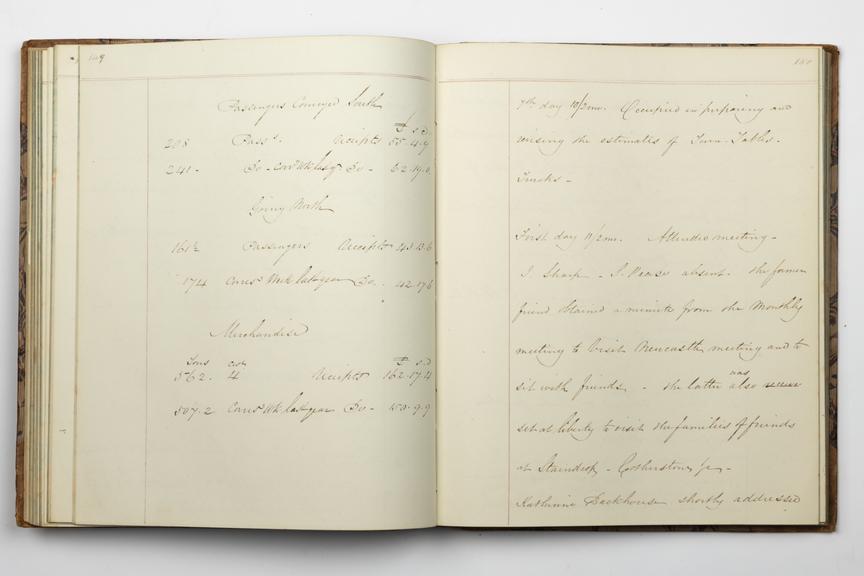 149
Passengers Conveyed South
£ s d
208 Pass.s Receipts 55.4.9
241 - Do - Cor.s Wk last yr Do - 62.19.0
Going North
161½ Passengers Receipts 43.13.6
174 Corres.s Week last year Do - 42.17.6
Merchandise
Tons cwt £ s d
562. 4 Receipts 162.17.4
507.2 Corres.s Wk last year Do - 150.9.9
150
7th day 10/2mo. Occupied in preparing and
revising the estimates of Turn-Tables -
Trucks -
First day 11/2mo. Attended meeting -
I. Sharp - J. Pease absent. the former
friend obtained a minute from the Monthly
meeting to visit Newcastle meeting and to
was
sit with friends - the latter also
set at liberty to visit the families of friends
at Staindrop - Cotherstone &c -
Katherine Backhouse shortly addressed